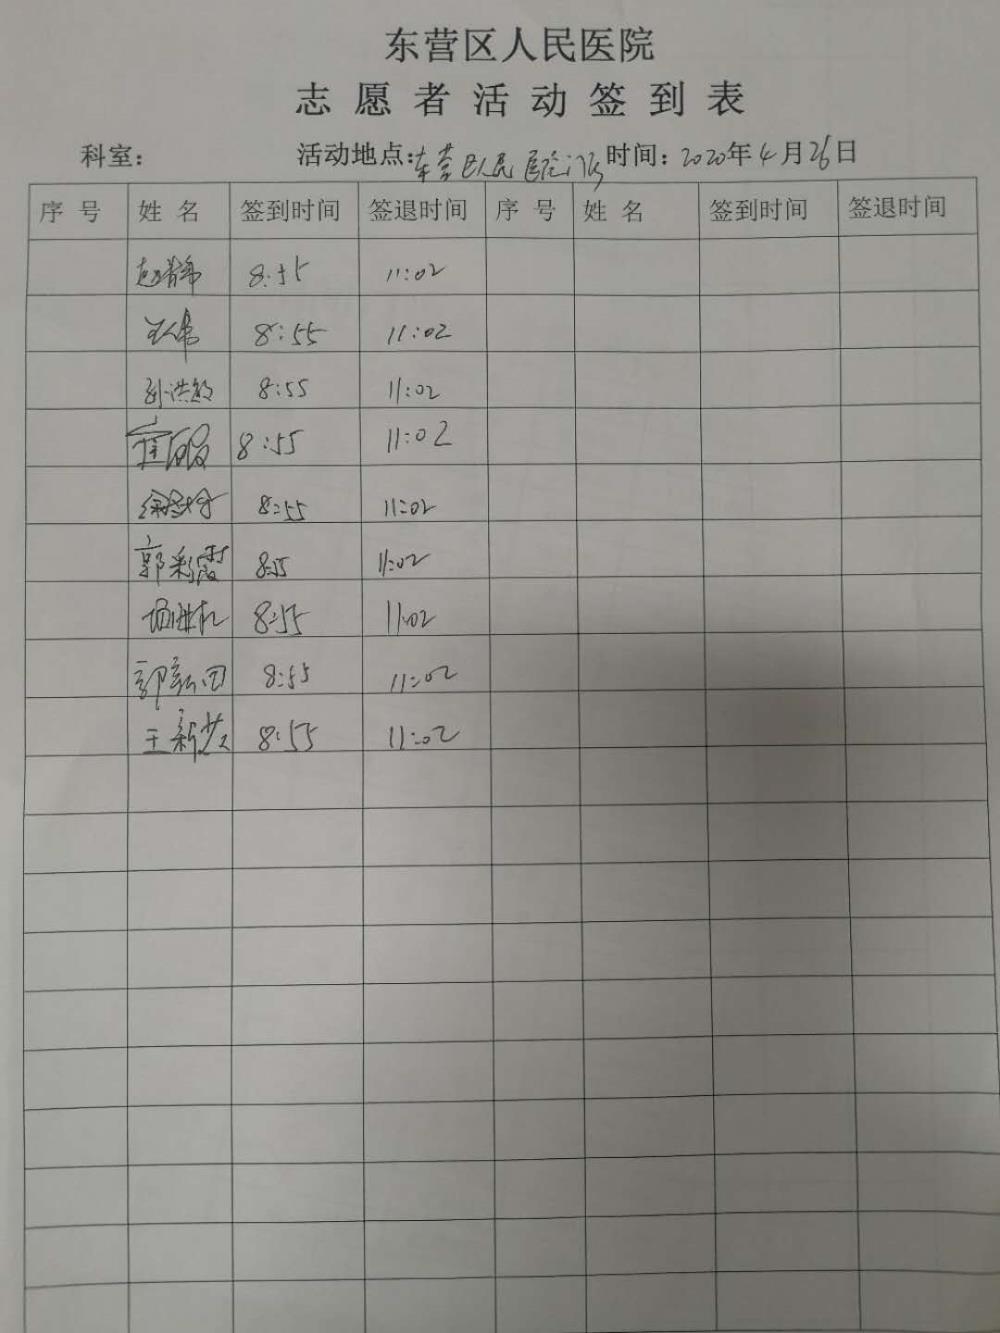 东营区人民医院
志愿者活动签到表
科室： 活动地点：东营区人民医院门诊 时间：2020年4月26日
序号 姓名 签到时间 签退时间 序号 姓名 签到时间 签退时间
8:55 11:02
8:55 11:02
8:55 11:02
8:55 11:02
8:55 11:02
郭彩霞 8:55 11:02
8:55 11:02
郭新田 8:55 11:02
王新芳 8:55 11:02